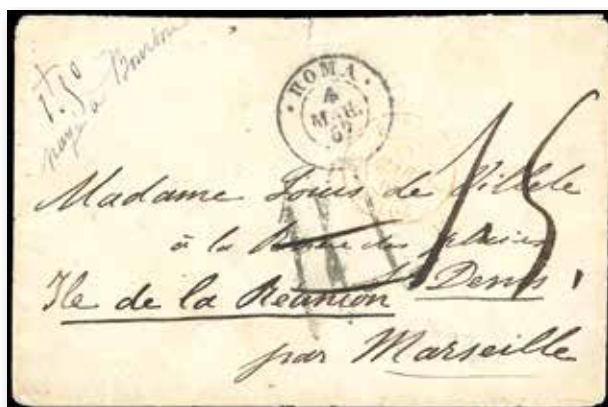 1f50
payé à Bourbon
ROMA
4
MAR.
67
15
Madame Louis de Villele
à la
St Denis,
Ile de la Réunion
par Marseille